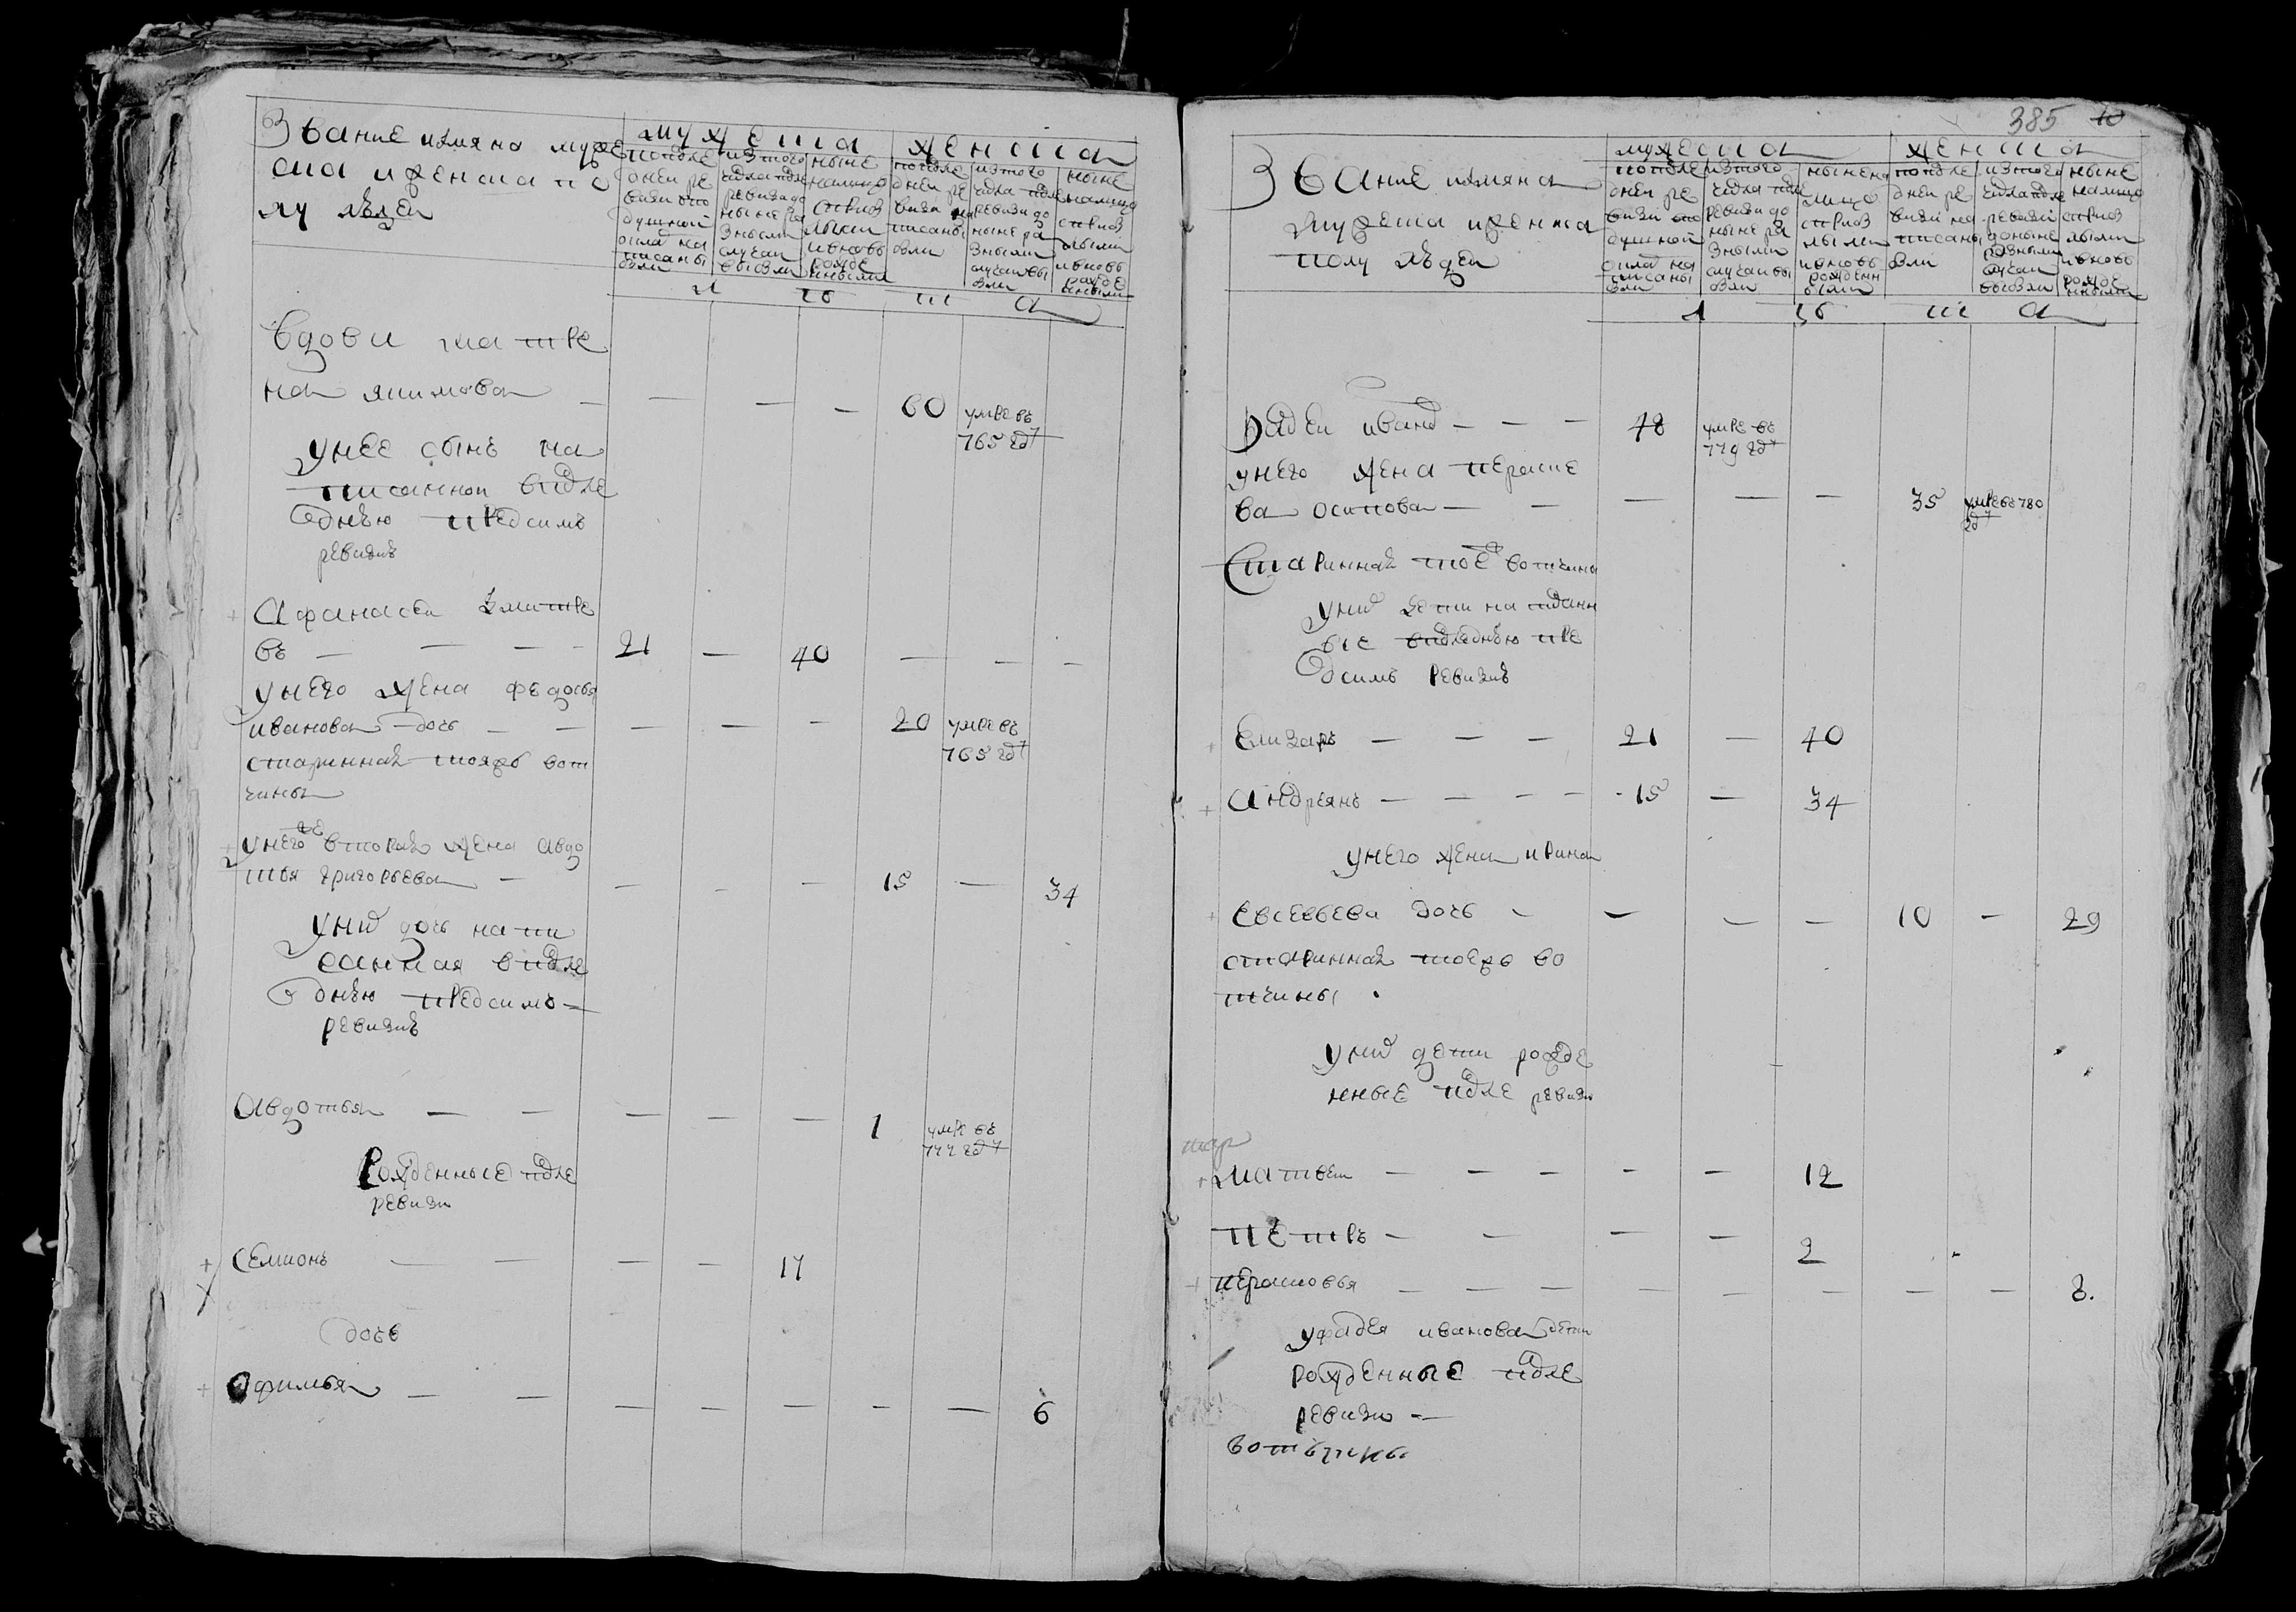 Звание имяна муже
ска и женска по
лу людей
мужеска
женска
попосле
дней ре
визи по
душной
окла на
писаны
были
изтого
числа после
ревизи до
ныне ра
зными
случаи
выбыли
ныне
налицо
сприб
лыми
ивновь
рожде
нными
попосле
дней ре
визи на
писаны
были
изтого
числа после
ревизи до
ныне ра
зными
случаи вы
были
ныне
налицо
сприб
лыми
ивновь
рожде
нными
л е т а
Вдовы матре
на якимова — — — — 60 умре въ
765 годУ
унее сынъ на
писанной впосле
днюю предсимъ
ревизию
Афанасеи дмитре
въ — — — — 21 — 40 — — —
унего жена федосья
иванова дочь — — — — — 20 умре въ
765 годУ
старинная тояжъ вот
чины
унего же вторая жена авдо
тья григорьева — — — — 15 — 34
уних дочь напи
санная впосле
днюю предсимъ —
ревизию
Авдотья — — — — — 1 умре въ
777 годУ
Рожденные после
ревизи
Семионъ — — — — 17
дочь
Офимья — — — — — — — 6
385 10
Звание имяна
мужеска и женска
полу людей
мужеска
женска
попосле
дней ре
визи по
душной
окла на
писаны
были
изтого
числа после
ревизи до
ныне ра
зными
случаи вы
были
ныне на
лицо
сприб
лыми
ивновь
рожденн
ыми
попосле
дней ре
визи на
писаны
были
изтого
числа после
ревизи
доныне
разными
случаи
выбыли
ныне
налицо
сприб
лыми
ивновь
рожде
нными
л е т а
Фадеи ивановъ — — — 48 умре въ
779 годУ
унего жена параске
ва осипова — — — — — 35 умре въ 780
годУ
Старинная тоеж вотчины
уних дети написанн
ые впоследнюю пре
дсимъ ревизию
Елизаръ — — — 21 — 40
Андреянъ — — — — 15 — 34
унего жена ирина
Евсевьева дочь — — — — 10 — 29
старинная тоежъ во
тчины
уних дети рожде
нные после ревизи
Матвеи — — — — — 12
Петръ — — — — 2
Парасковья — — — — — — — — 8.
уфадея иванова дети
рожденные после
ревизи —
вотчины